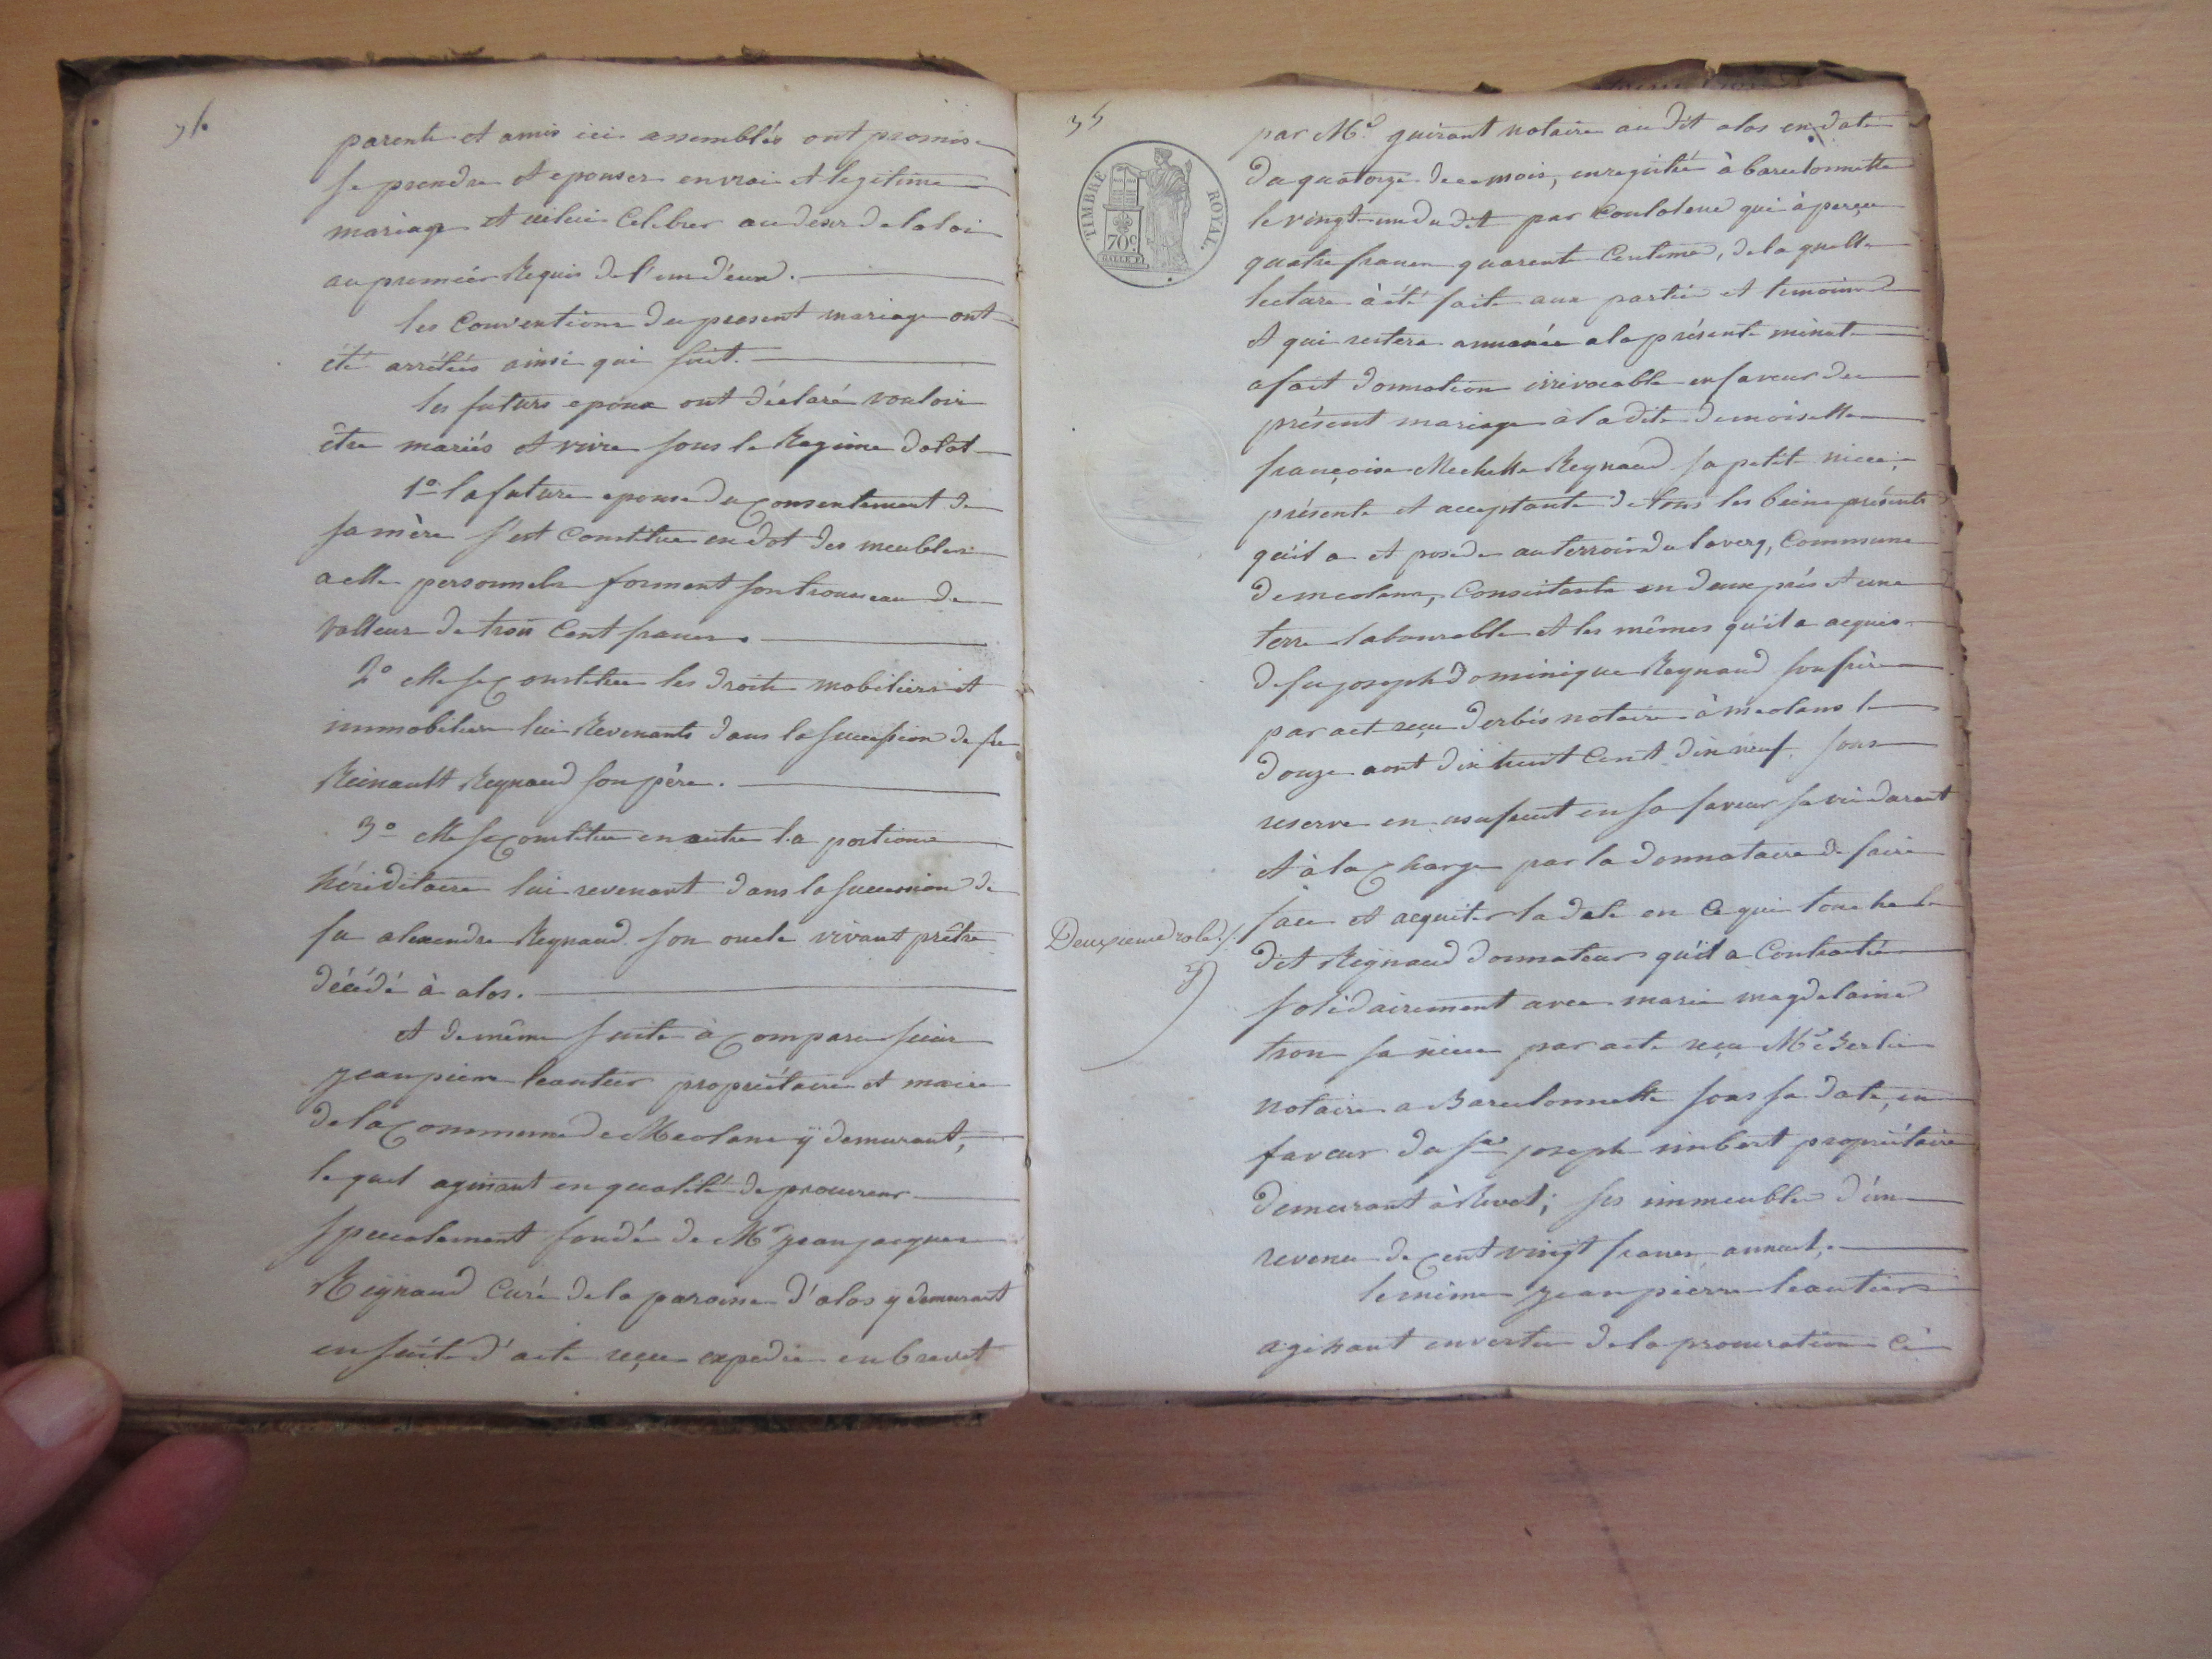 parents et amis ici assemblés ont promis
se prendre et epouser en vrai et legitime
mariage et icelui Celebrer au desir de la loi
au premier Requis de l'un d'eux.
les Conventions du present mariage ont
été arrêtées ainsi qui suit.
les futurs epoux ont déclaré vouloir
être mariés et vivre sous le Regime dotal
1º la future epouse du consentement de
sa mère s'est Constitue en dot des meubles
a elle personnels forment son trousseau de
valleur de trois Cent francs.
2º elle se Constitue les droits mobiliers et
immobiliers lui Revenants dans la succession de feu
Reinault Reynaud son père.
3º elle se Constitue en outre la portion
héréditaire lui revenant dans la succession de
feu alexendre Reynaud son oncle vivant prêtre
décédé à alos.
et de même suite à comparu sieur
jean pierre leautier propriétaire et maire
de la Commune de Meolans ÿ demurant,
le quel agissant en qualité de procureur
specialement fondé de Mr jean jacques
Reÿnaud Curé de la paroisse d'alos ÿ demurant
en suite d'acte reçu expedié en brevet
35
TIMBRE ROYAL.
70c
par Me guirant notaire au dit alos en date
du quatorze de ce mois, enregistré à barcelonnette
le vingt un du dit par qui à perçu
quatre francs quarente Centimes, de la quelle
lecture à été faite aux parties et temoins
et qui restera annexée a la présente minute
a fait donnation irrivocable en faveur du
présent mariage à la dite demoiselle
françoise Reynaud sa petite niece,
présente et acceptante de tous les biens présents
qu'il a et posede au terroir du laverq, Commune
de meolans, Consistants en deux prés et une
terre labourable et les mêmes qu'il a acquis
de feu joseph dominique Reynaud son frère
par act reçu derbés notaire à meolans le
douze aout dix huit Cent dix neuf sous
reserve en usufruit en sa faveur sa vie durant
et à la charge par la donnataire de faire
face et acquiter la dete en Ce qui touche le
Deuxieme role ./.
dit Reÿnaud donnateur qu'il a Contractée
solidairement avec marie magdelaine
tron sa niece par acte reçu Me
notaire a Barcelonnette sous sa date, en
faveur du sr joseph imbert propriétaire
demeurant à Revel; ses immeubles d'un
revenu de cent vingt francs annuel.
le même jean pierre leautier
agissant en vertu de la procuration Ci